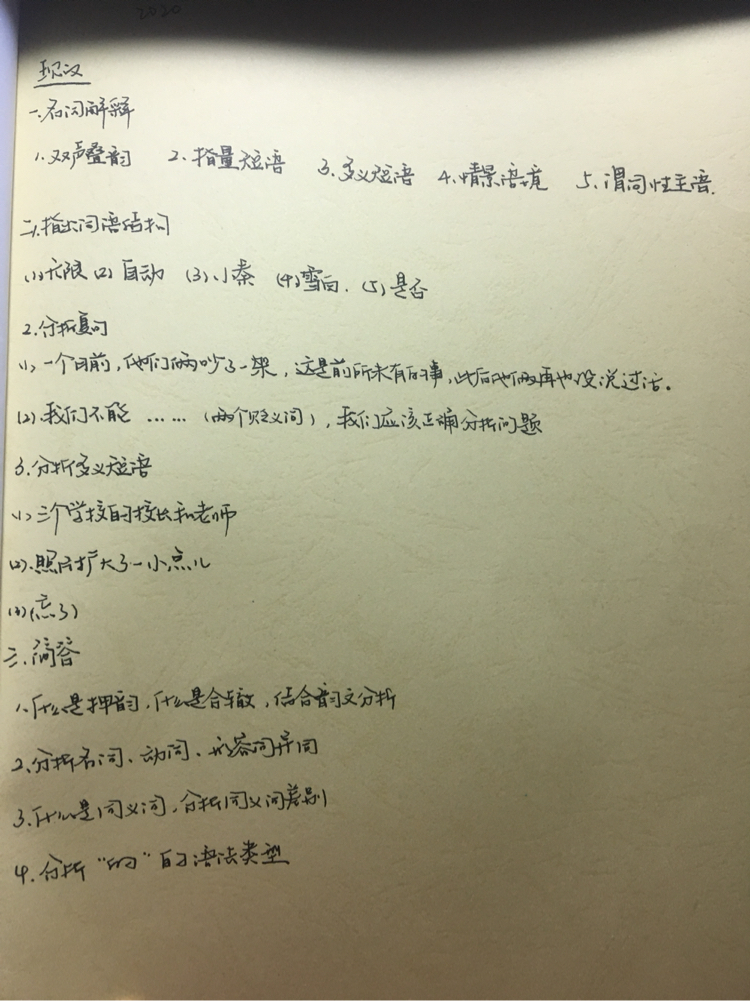 2020
现汉
一.名词解释
1.双声叠韵 2.指量短语 3.多义短语 4.情景语境 5.谓词性主语.
二.1.指出词语结构
(1)无限 (2)自动 (3)小秦 (4)雪白. (5)是否
2.分析复句
(1)一个月前,他们俩吵了一架,这是前所未有的事,此后他们俩再也没说过话。
(2).我们不能……(两个贬义词),我们应该正确分析问题
3.分析多义短语
(1)三个学校的校长和老师
(2).照片扩大了一小点儿
(3)(忘了)
三.简答
1.什么是押韵,什么是合辙,结合韵文分析
2.分析名词、动词、形容词异同
3.什么是同义词,分析同义词差别
4.分析“的”的语法类型